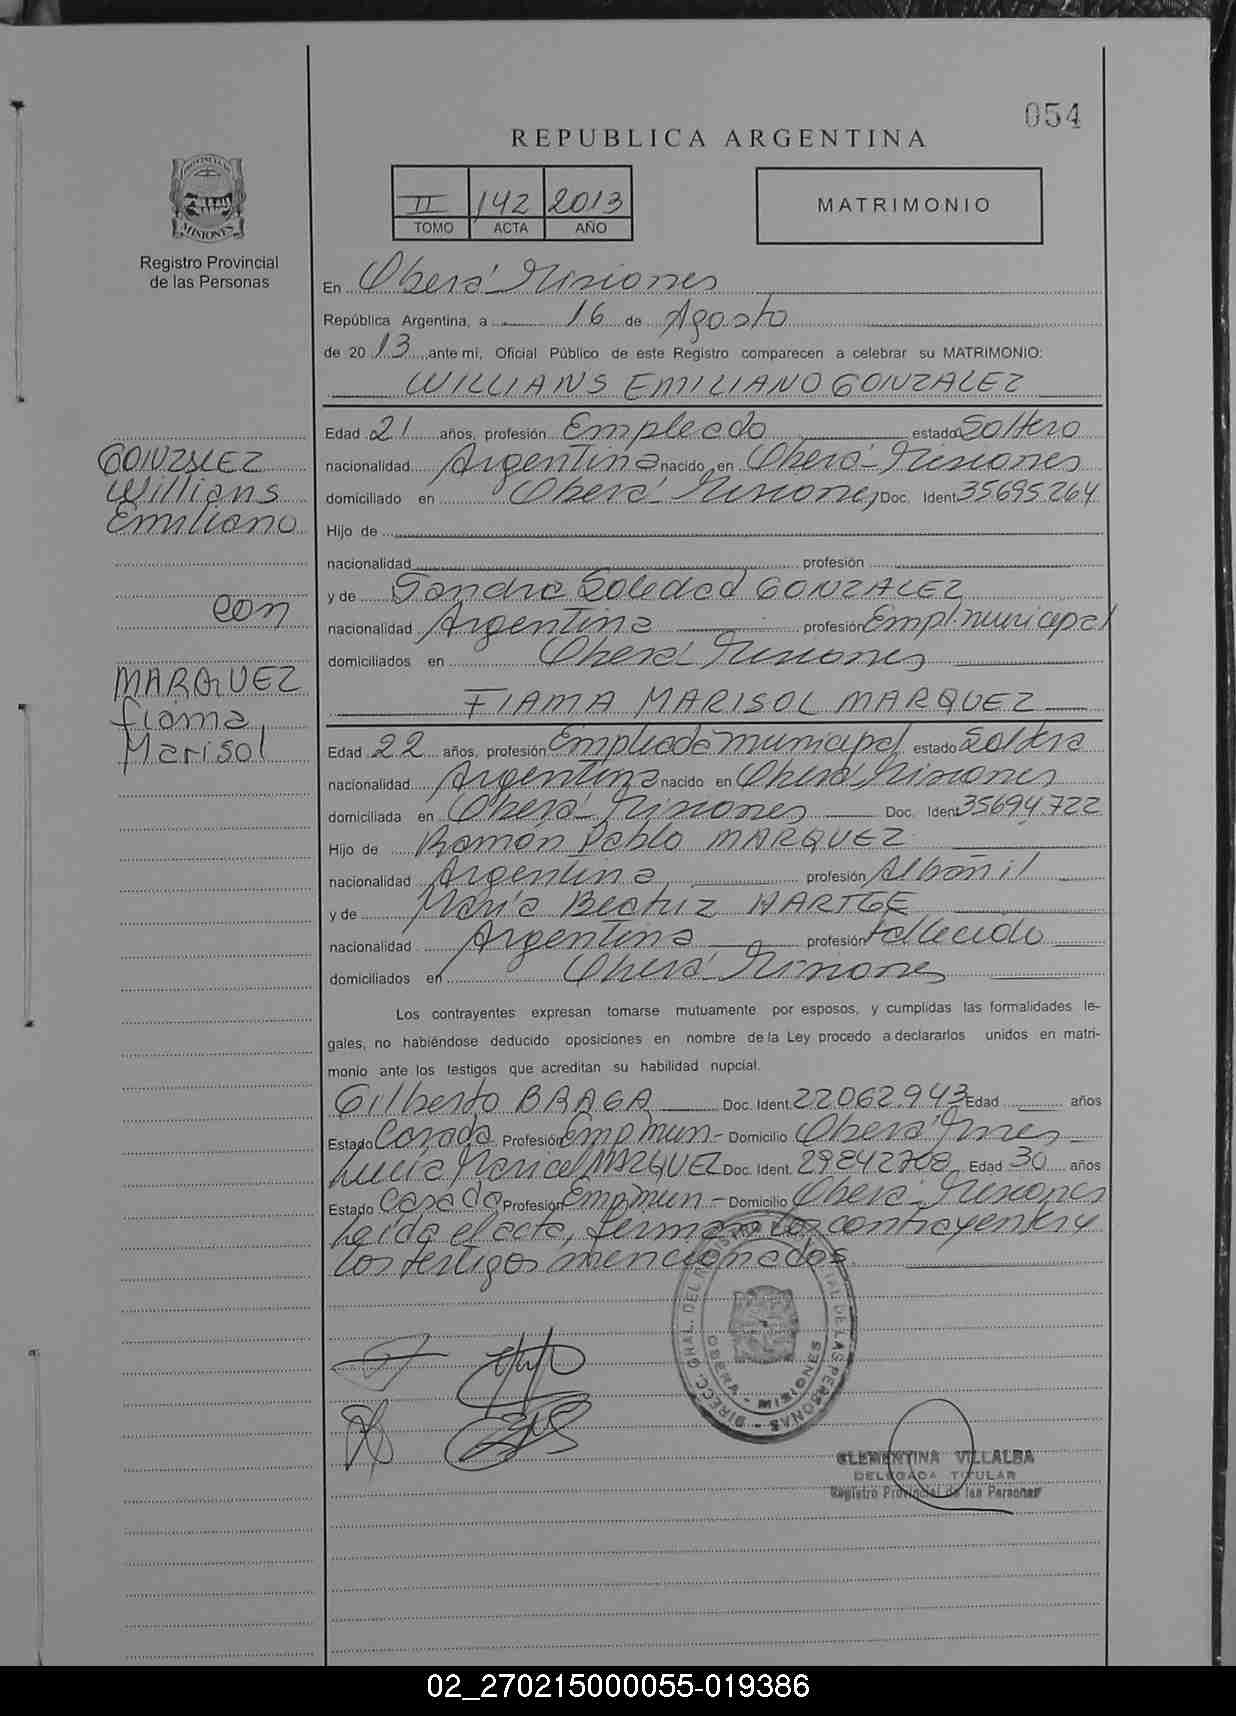 054
REPUBLICA ARGENTINA
II 142 2013
TOMO ACTA AÑO
MATRIMONIO
PROVINCIA DE
MISIONES
Registro Provincial
de las Personas
En Oberá Misiones
República Argentina, a 16 de Agosto
de 2013 ante mi, Oficial Público de este Registro comparecen a celebrar su MATRIMONIO:
WILLIANS EMILIANO GONZALEZ
Edad 21 años, profesión Empleado estado Soltero
GONZALEZ
Willians
Emiliano
con
MARQUEZ
fiama
Marisol
nacionalidad Argentina nacido en Oberá-Misiones
domiciliado en Oberá Misiones Doc. Ident 35695264
Hijo de
nacionalidad profesión
y de Sandra Soledad GONZALEZ
nacionalidad Argentina profesión Empl. municipal
domiciliados en Oberá Misiones
FIAMA MARISOL MARQUEZ
Edad 22 años, profesión Empleada municipal estado Soltera
nacionalidad Argentina nacido en Oberá Misiones
domiciliada en Oberá Misiones Doc. Ident 35694.722
Hijo de Ramón Pablo MARQUEZ
nacionalidad Argentina profesión Albañil
y de María Beatriz HARTGE
nacionalidad Argentina profesión fallecido
domiciliados en Oberá Misiones
Los contrayentes expresan tomarse mutuamente por esposos, y cumplidas las formalidades le-
gales, no habiéndose deducido oposiciones en nombre de la Ley procedo a declararlos unidos en matri-
monio ante los testigos que acreditan su habilidad nupcial.
Gilberto BRAGA Doc. Ident. 22062.943 Edad años
Estado Casado Profesión Emp mun- Domicilio Oberá Mnes
Lucía Maricel MARQUEZ Doc. Ident. 29842708 Edad 30 años
Estado Casada Profesión Emp mun- Domicilio Oberá-Misiones
Leída el acta, firman los contrayentes y
los testigos mencionados.
DIRECC. GRAL. DEL REGISTRO DE LAS PERSONAS
OBERA - MISIONES
CLEMENTINA VILLALBA
DELEGADA TITULAR
Registro Provincial de las Personas
02_270215000055-019386